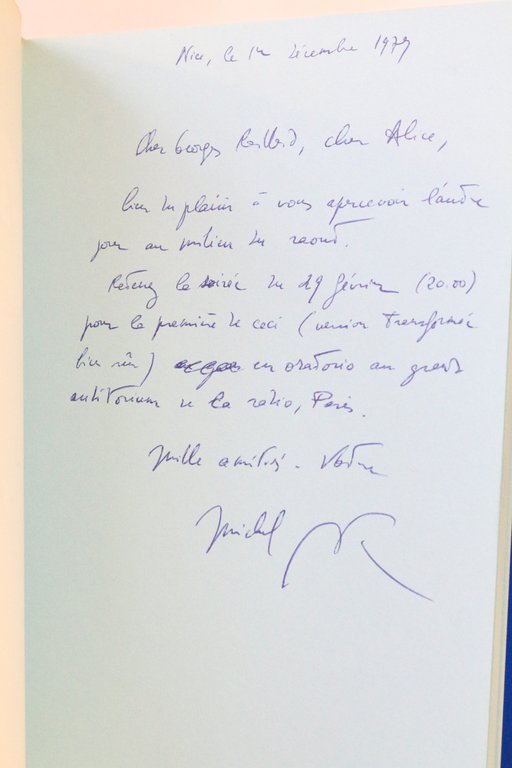 Nice, le 1er décembre 1979
Cher Georges Raillard, chère Alice,
bien du plaisir à vous apercevoir l'autre
jour au milieu du raout.
Retenez la soirée du 29 février (20.00)
pour la première de ceci (version transformée
bien sûr) en oratorio au grand
auditorium de la radio, Paris.
Mille amitiés. Votre
Michel